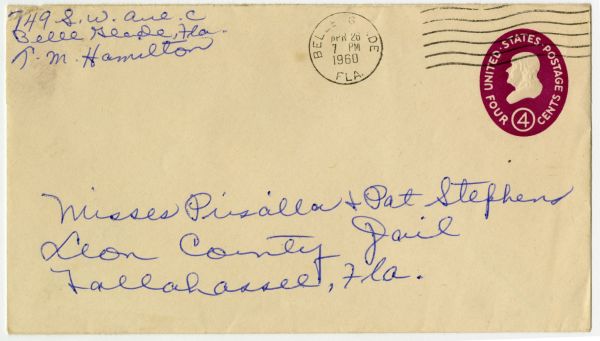 749 S.W. Ave. C
Belle Glade, Fla.
T. M. Hamilton
BELLE GLADE
APR 26
7 PM
1960
FLA.
UNITED STATES POSTAGE
4
FOUR CENTS
Misses Prisalla & Pat Stephens
Leon County Jail
Tallahassee, Fla.